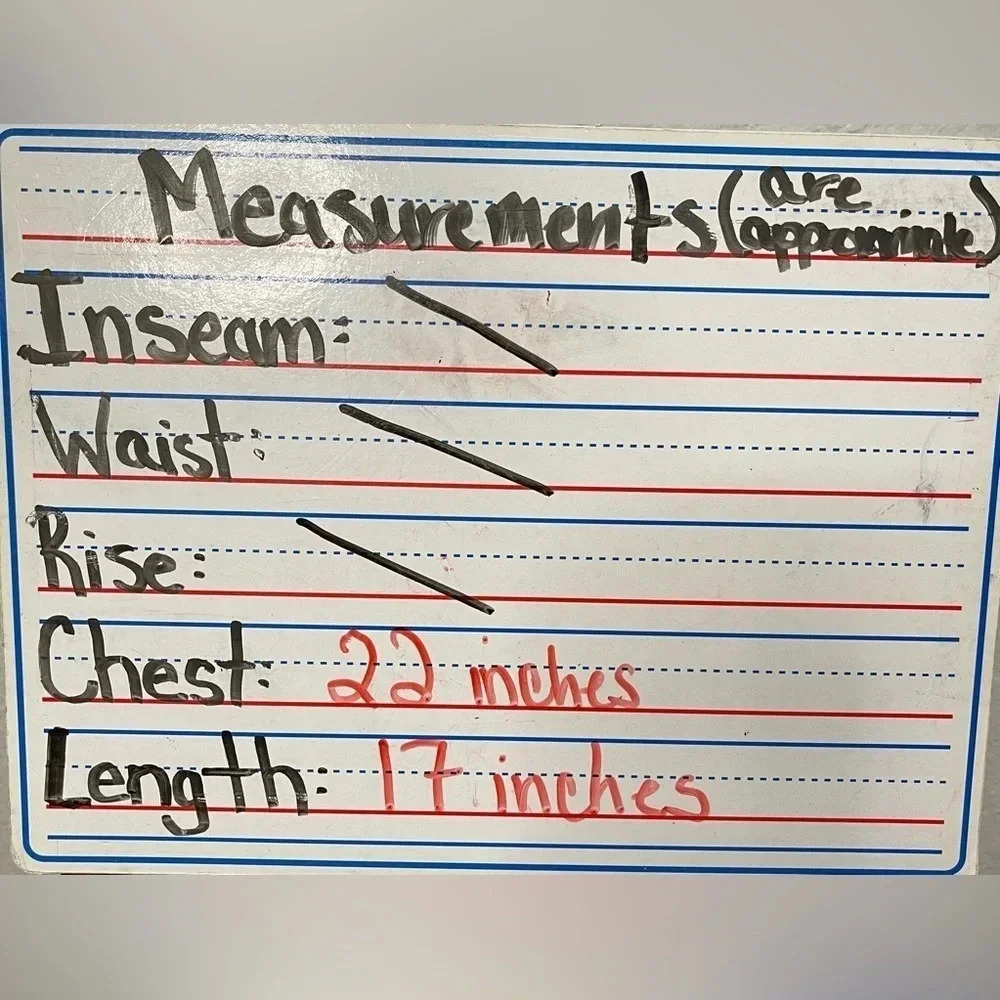 Measurements (are approximate)
Inseam: \
Waist: \
Rise: \
Chest: 22 inches
Length: 17 inches